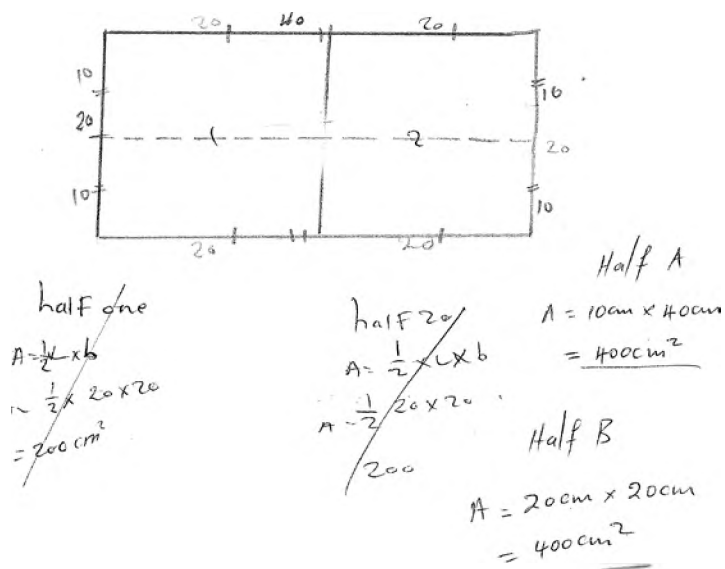 20 40 20
10 10
20 1 2 20
10 10
20 20
half one
A = 1/2 L × b
= 1/2 × 20 × 20
= 200 cm²
half 20
A = 1/2 × L × b
A = 1/2 20 × 20
200
Half A
A = 10cm × 40cm
= 400cm²
Half B
A = 20cm × 20cm
= 400cm²